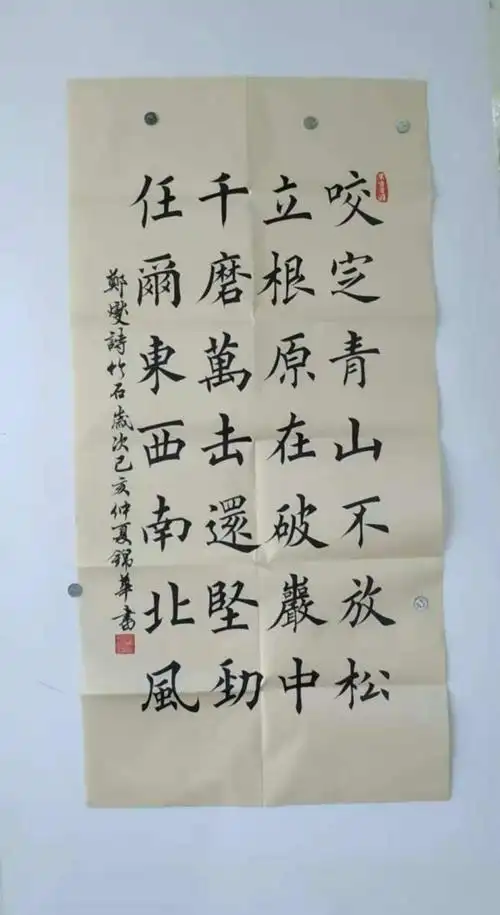 咬定青山不放松
立根原在破巖中
千磨萬击還堅勁
任爾東西南北風
鄭燮詩竹石歲次己亥仲夏錦華書